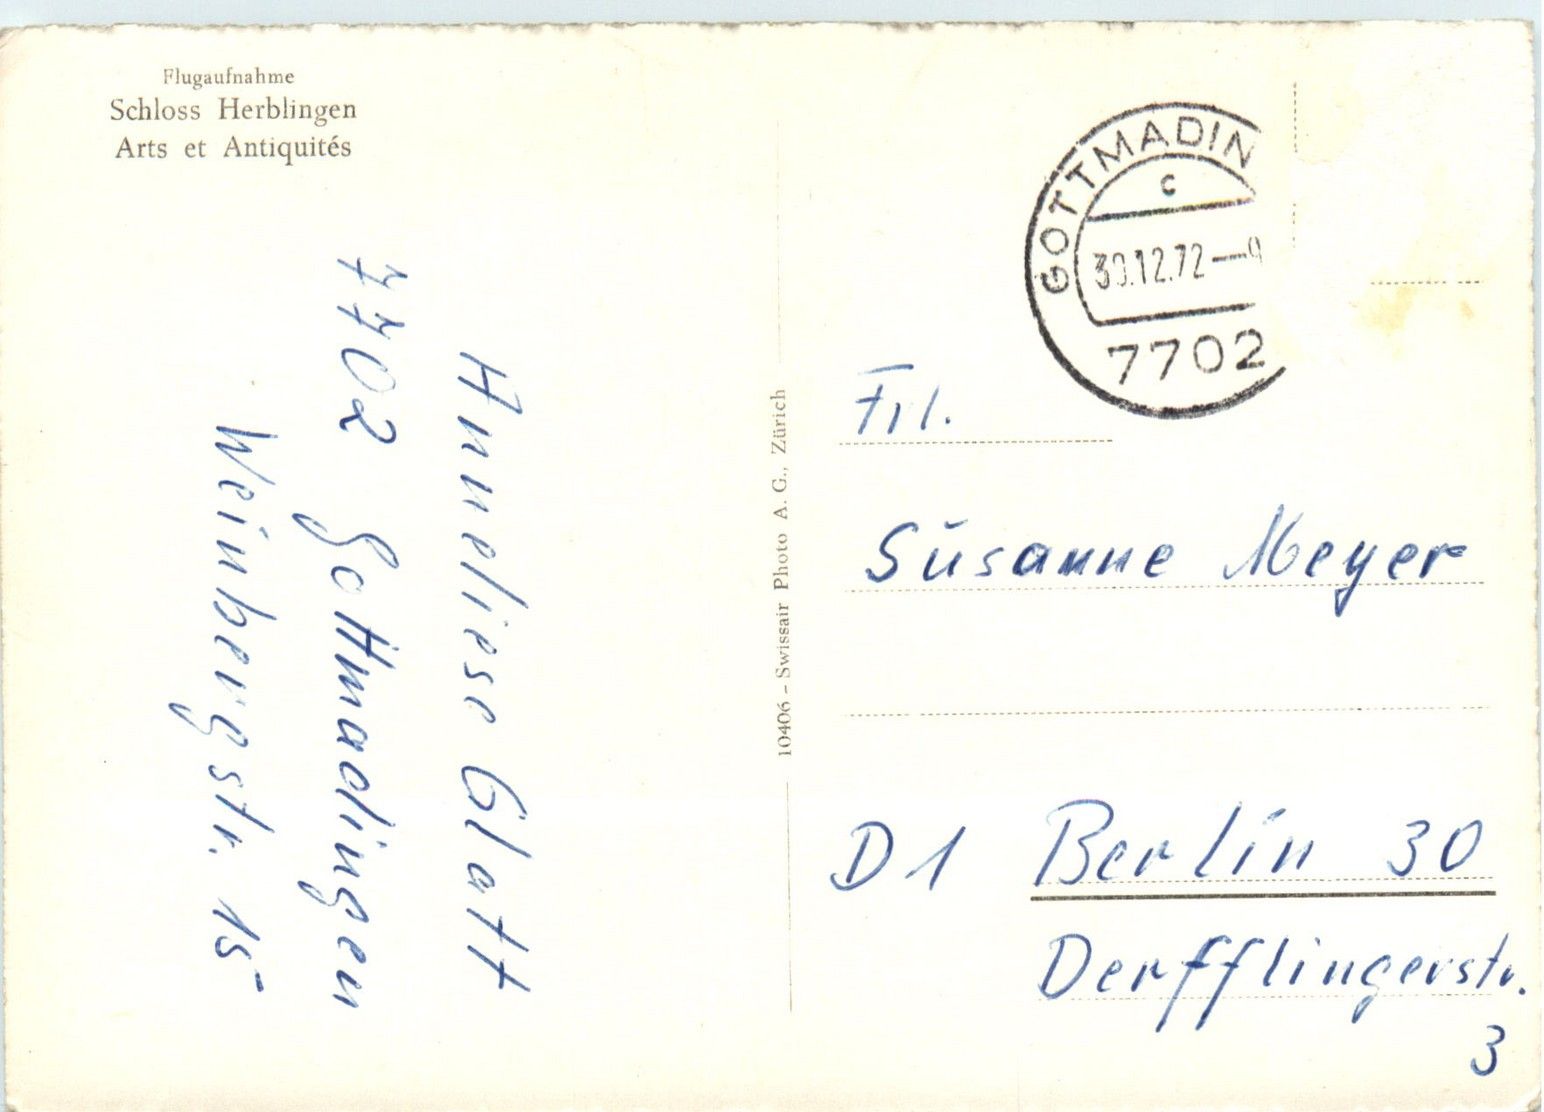 Flugaufnahme
Schloss Herblingen
Arts et Antiquités
Anneliese Glatt
7702 Gottmadingen
Weinbergstr. 15
10406 – Swissair Photo A. G., Zürich
GOTTMADIN
c
30.12.72—9
7702
Frl.
Susanne Meyer
D 1 Berlin 30
Derfflingerstr.
3